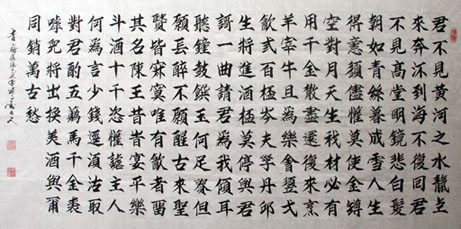 君不見黃河之水靝上
來奔流到海不復回君
不見高堂明鏡悲白髮
朝如青絲暮成雪人生
得意須盡懽莫使金樽
空對月天生我材必有
用千金散盡還復來烹
羊宰牛且為樂會須弌
飲弎百杯岑夫子丹邱
生將進酒杯莫停與君
謌一曲請君為我傾耳
聽鐘鼓饌玉何足貴但
願長醉不願醒古來聖
賢皆寂寞唯有飲者留
其名陳王昔時宴平樂
斗酒十千恣懽謔主人
何為言少錢逕須沽取
對君酌五花馬千金裘
呼兒將出換美酒與爾
同銷萬古愁